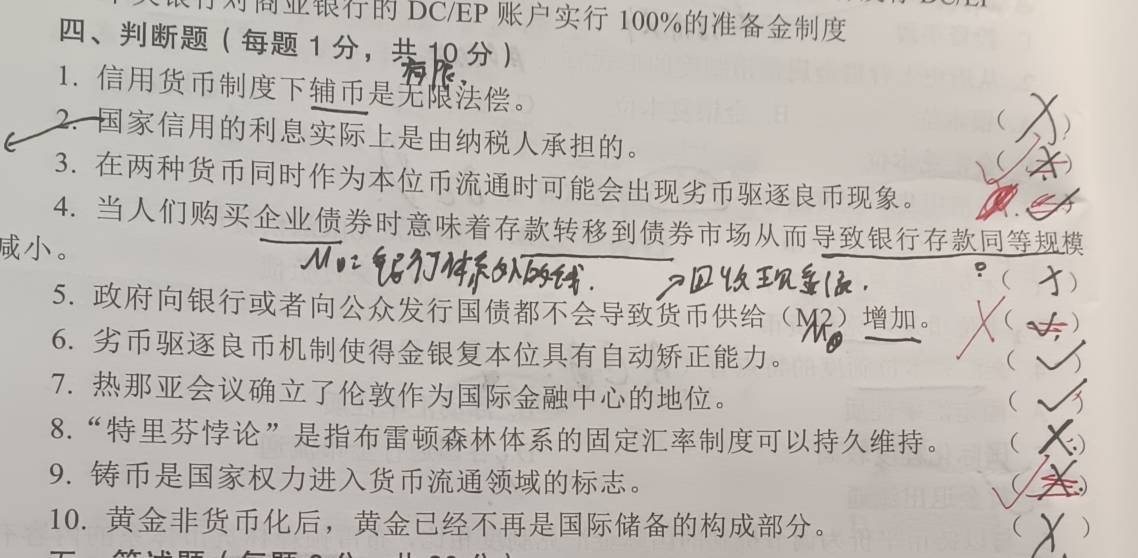 商业银行的 DC/EP 账户实行 100%的准备金制度
四、判断题（每题 1 分，共 10 分）
有限.
1. 信用货币制度下辅币是无限法偿。
（ ╳ ）
2. 国家信用的利息实际上是由纳税人承担的。
3. 在两种货币同时作为本位币流通时可能会出现劣币驱逐良币现象。
4. 当人们购买企业债券时意味着存款转移到债券市场从而导致银行存款同等规模
减小。
?
（ ╳ ）
5. 政府向银行或者向公众发行国债都不会导致货币供给（M2）增加。
6. 劣币驱逐良币机制使得金银复本位具有自动矫正能力。
（ ✓ ）
7. 热那亚会议确立了伦敦作为国际金融中心的地位。
（ ✓ ）
8. “特里芬悖论”是指布雷顿森林体系的固定汇率制度可以持久维持。
（ ╳ ）
9. 铸币是国家权力进入货币流通领域的标志。
10. 黄金非货币化后，黄金已经不再是国际储备的构成部分。
（ ╳ ）